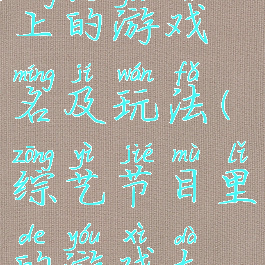 上的游戏
míng jí wán fǎ
名及玩法(
zōng yì jié mù lǐ
综艺节目里
de yóu xì dà
的游戏大